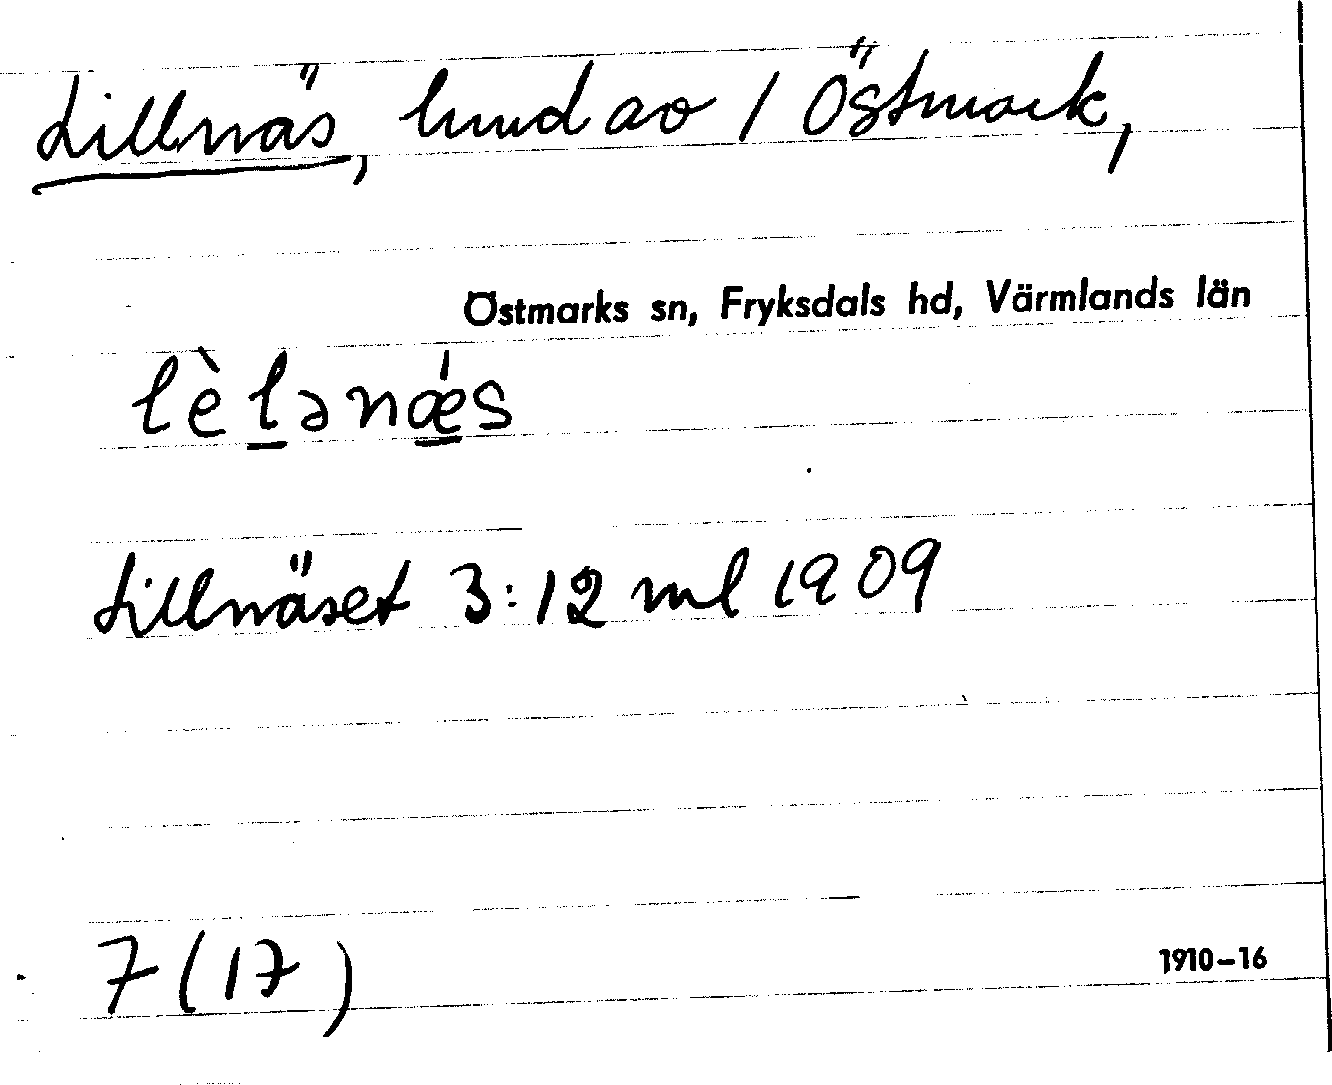 Lillnäs, hmd av 1 Östmark,
Östmarks sn, Fryksdals hd, Värmlands län
lèlənǽs
Lillnäset 3:12 ml 1909
7 (17)
1910–16